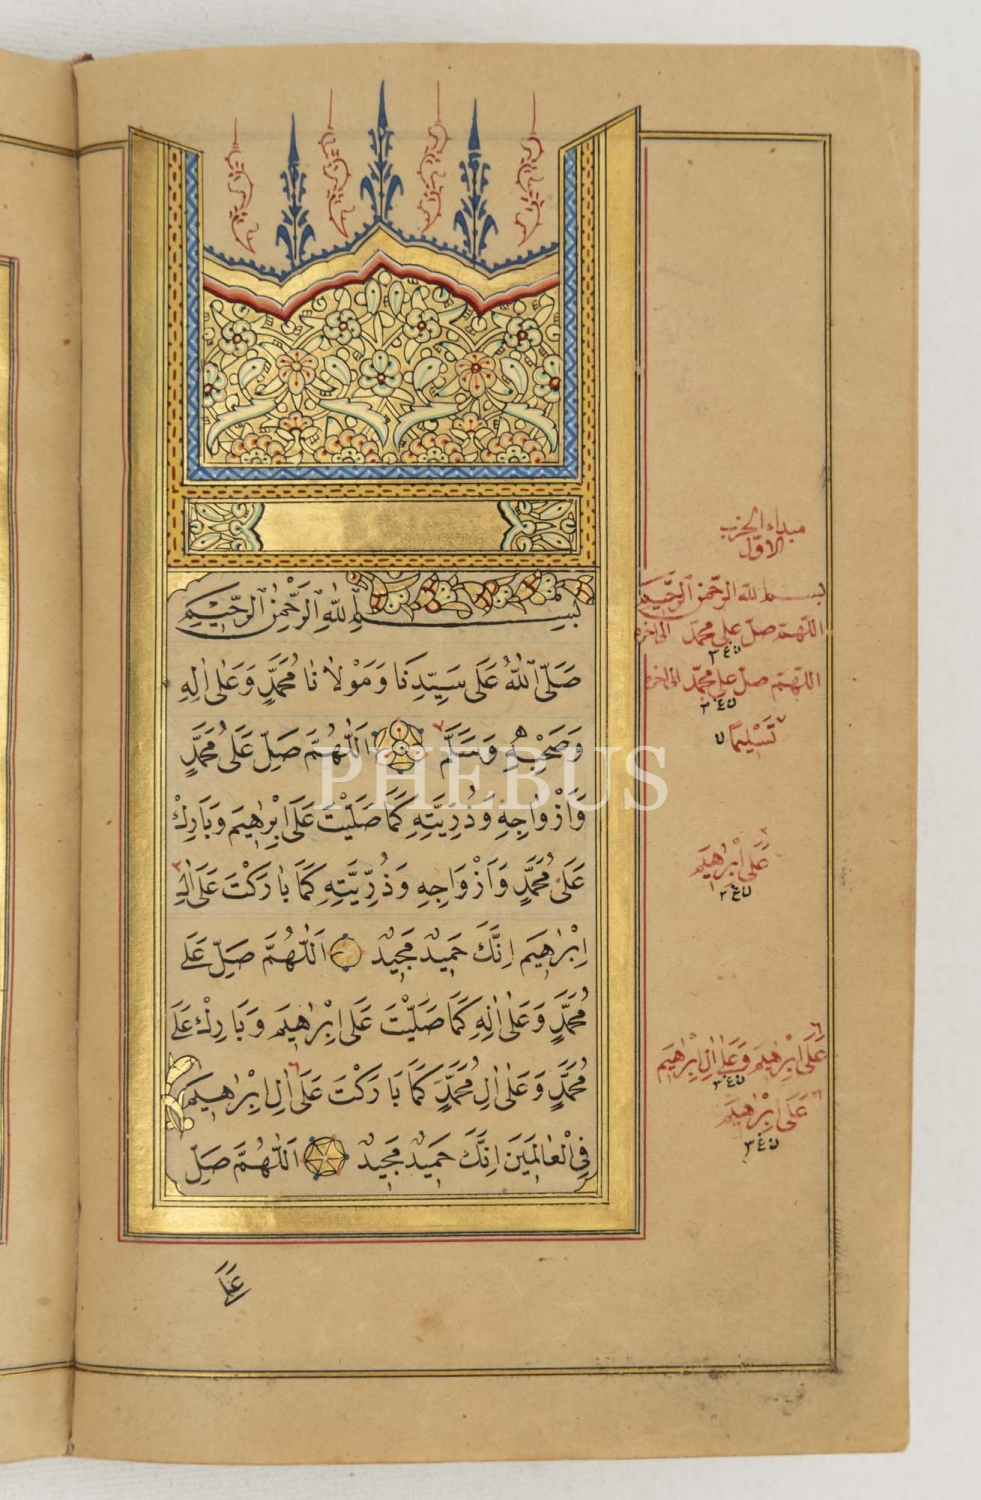 بِسْمِ اللهِ الرَّحْمٰنِ الرَّحِيمِ
صَلَّى اللهُ عَلٰى سَيِّدِنَا وَمَوْلَانَا مُحَمَّدٍ وَعَلٰى اٰلِهِ
وَصَحْبِهِ وَسَلَّمَ اَللّٰهُمَّ صَلِّ عَلٰى مُحَمَّدٍ
وَاَزْوَاجِهِ وَذُرِّيَّتِهِ كَمَا صَلَّيْتَ عَلٰى اِبْرٰهِيمَ وَبَارِكْ
عَلٰى مُحَمَّدٍ وَاَزْوَاجِهِ وَذُرِّيَّتِهِ كَمَا بَارَكْتَ عَلٰى اٰلِ
اِبْرٰهِيمَ اِنَّكَ حَمِيدٌ مَجِيدٌ اَللّٰهُمَّ صَلِّ عَلٰى
مُحَمَّدٍ وَعَلٰى اٰلِهِ كَمَا صَلَّيْتَ عَلٰى اِبْرٰهِيمَ وَبَارِكْ عَلٰى
مُحَمَّدٍ وَعَلٰى اٰلِ مُحَمَّدٍ كَمَا بَارَكْتَ عَلٰى اٰلِ اِبْرٰهِيمَ
فِي الْعَالَمِينَ اِنَّكَ حَمِيدٌ مَجِيدٌ اَللّٰهُمَّ صَلِّ
عَلٰى
مبداء الحزب
الاوّل
بسم الله الرحمن الرحيم
اللهم صل على محمد
اللهم صل على محمد
تَسْلِيمًا
عَلٰى اِبْرٰهِيمَ
عَلٰى اِبْرٰهِيمَ وَعَلٰى اٰلِ اِبْرٰهِيمَ
عَلٰى اِبْرٰهِيمَ
PHEBUS